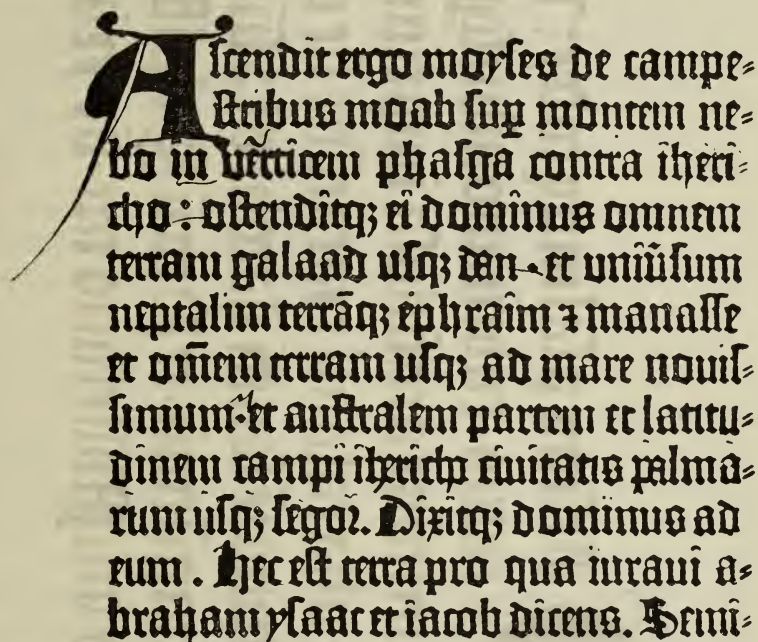 Ascendit ergo moyses de campe⸗
stribus moab suꝑ montem ne⸗
bo in v̄erticem phasga contra iheri⸗
cho : ostenditqꝫ ei dominus omnem
terram galaad usqꝫ dan . et uniūsum
neptalim terrāqꝫ ephraim ⁊ manasse
et om̄em terram usqꝫ ad mare nouis⸗
simum . et australem partem et latitu⸗
dinem campi ihericho ciuitatis palma⸗
rum usqꝫ segor. Dixitqꝫ dominus ad
eum . Hec est terra pro qua iuraui a⸗
braham ysaac et iacob dicens. Semi⸗